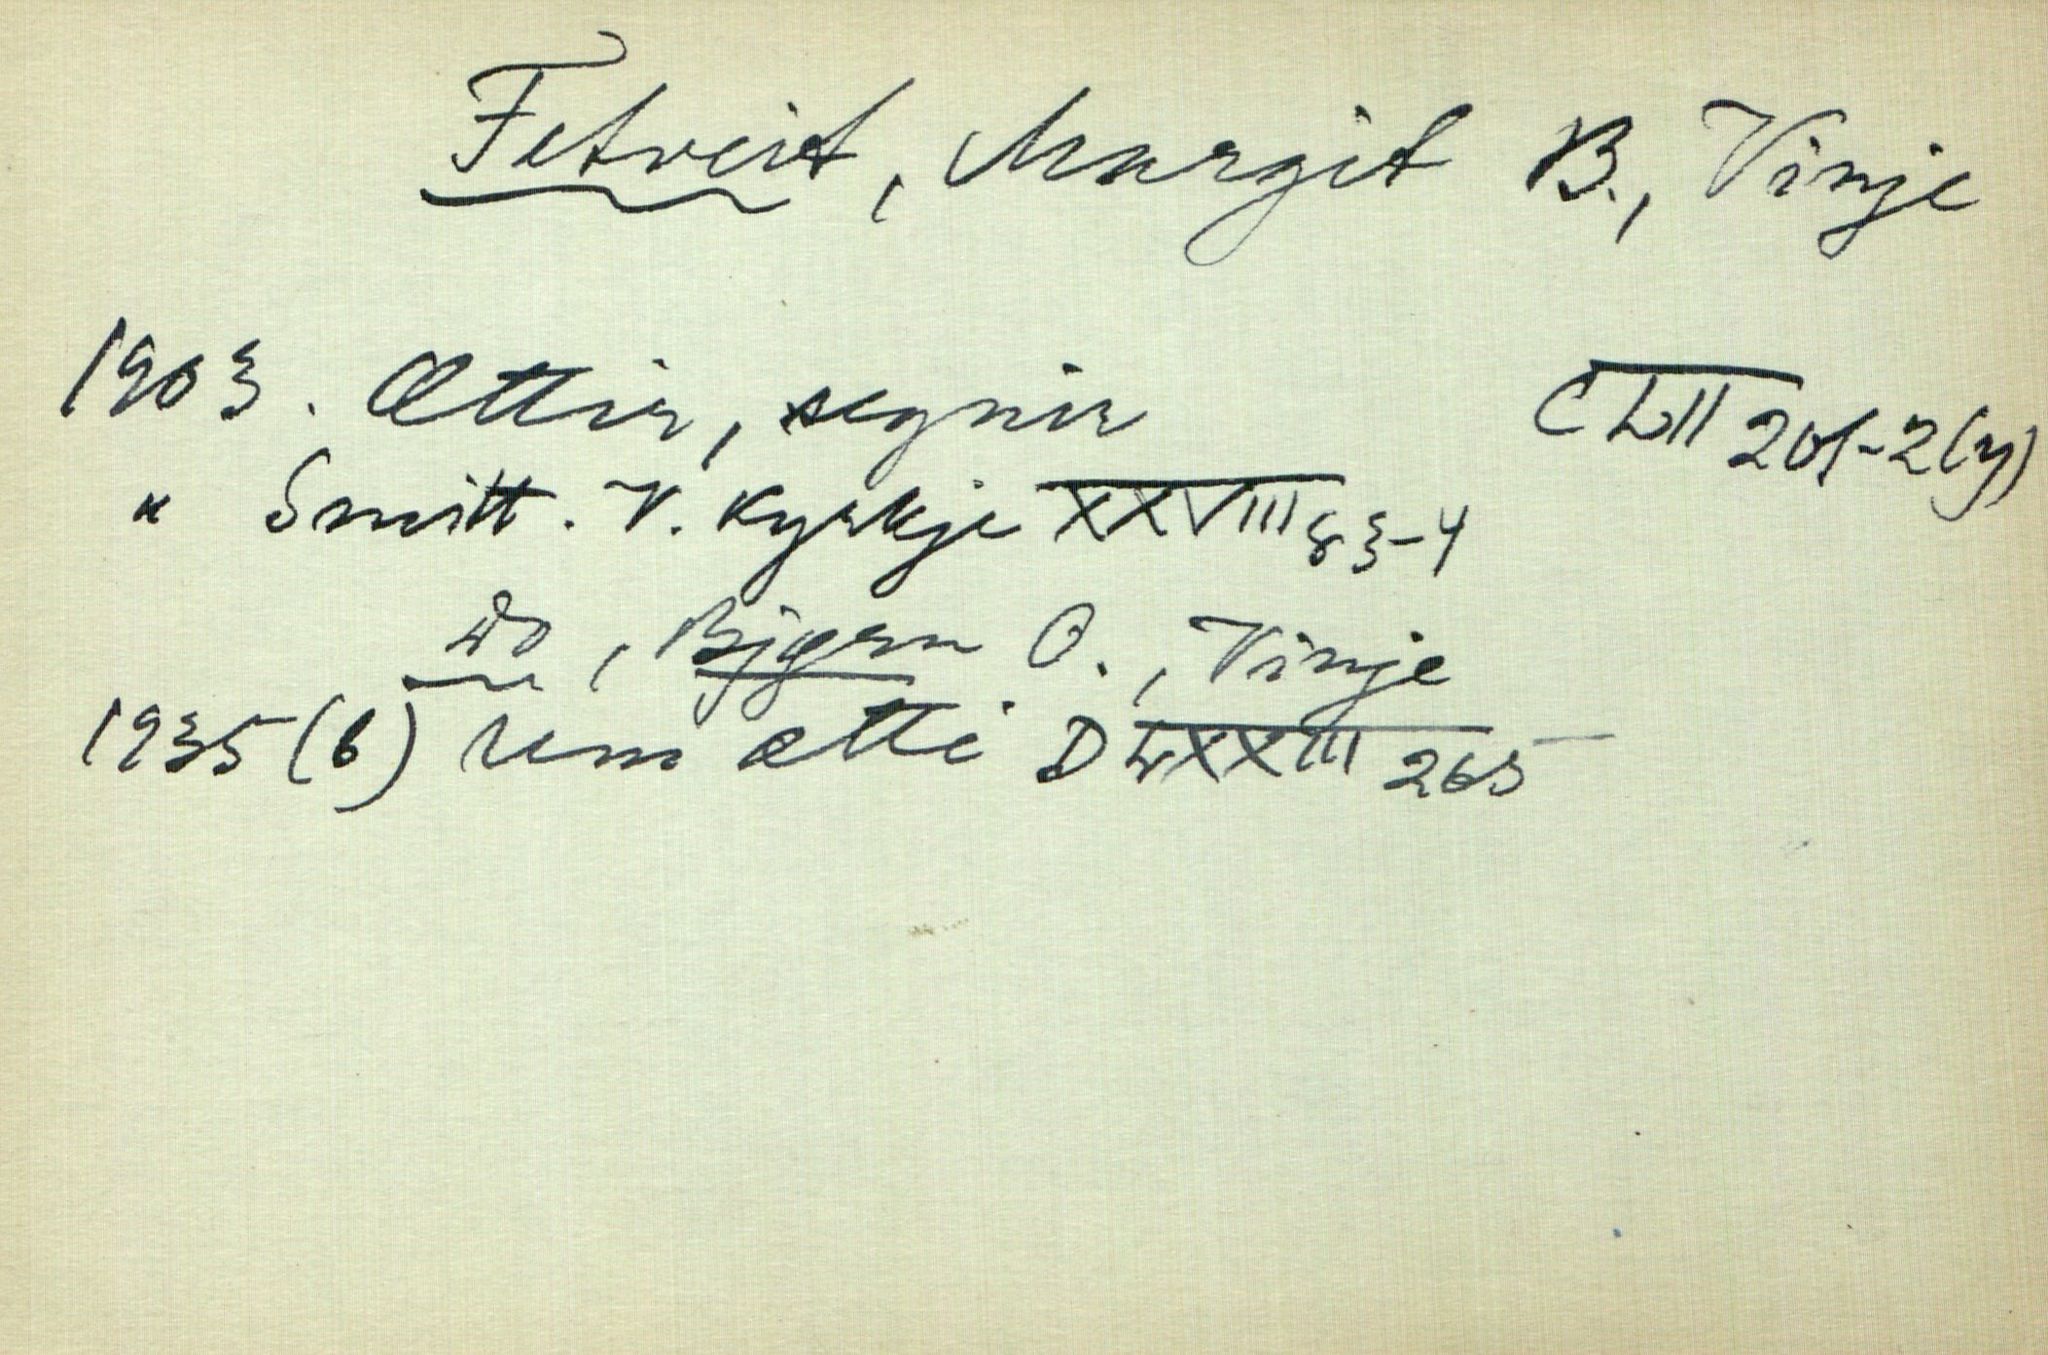 Fetveit, Margit B., Vinje
1903. Ættir, segnir CLII 201-2(y)
" Smått. V. Kyrkje XXVIII 83-4
Do, Bjørn O., Vinje
1935(6) Um ætti DLXXIII 265